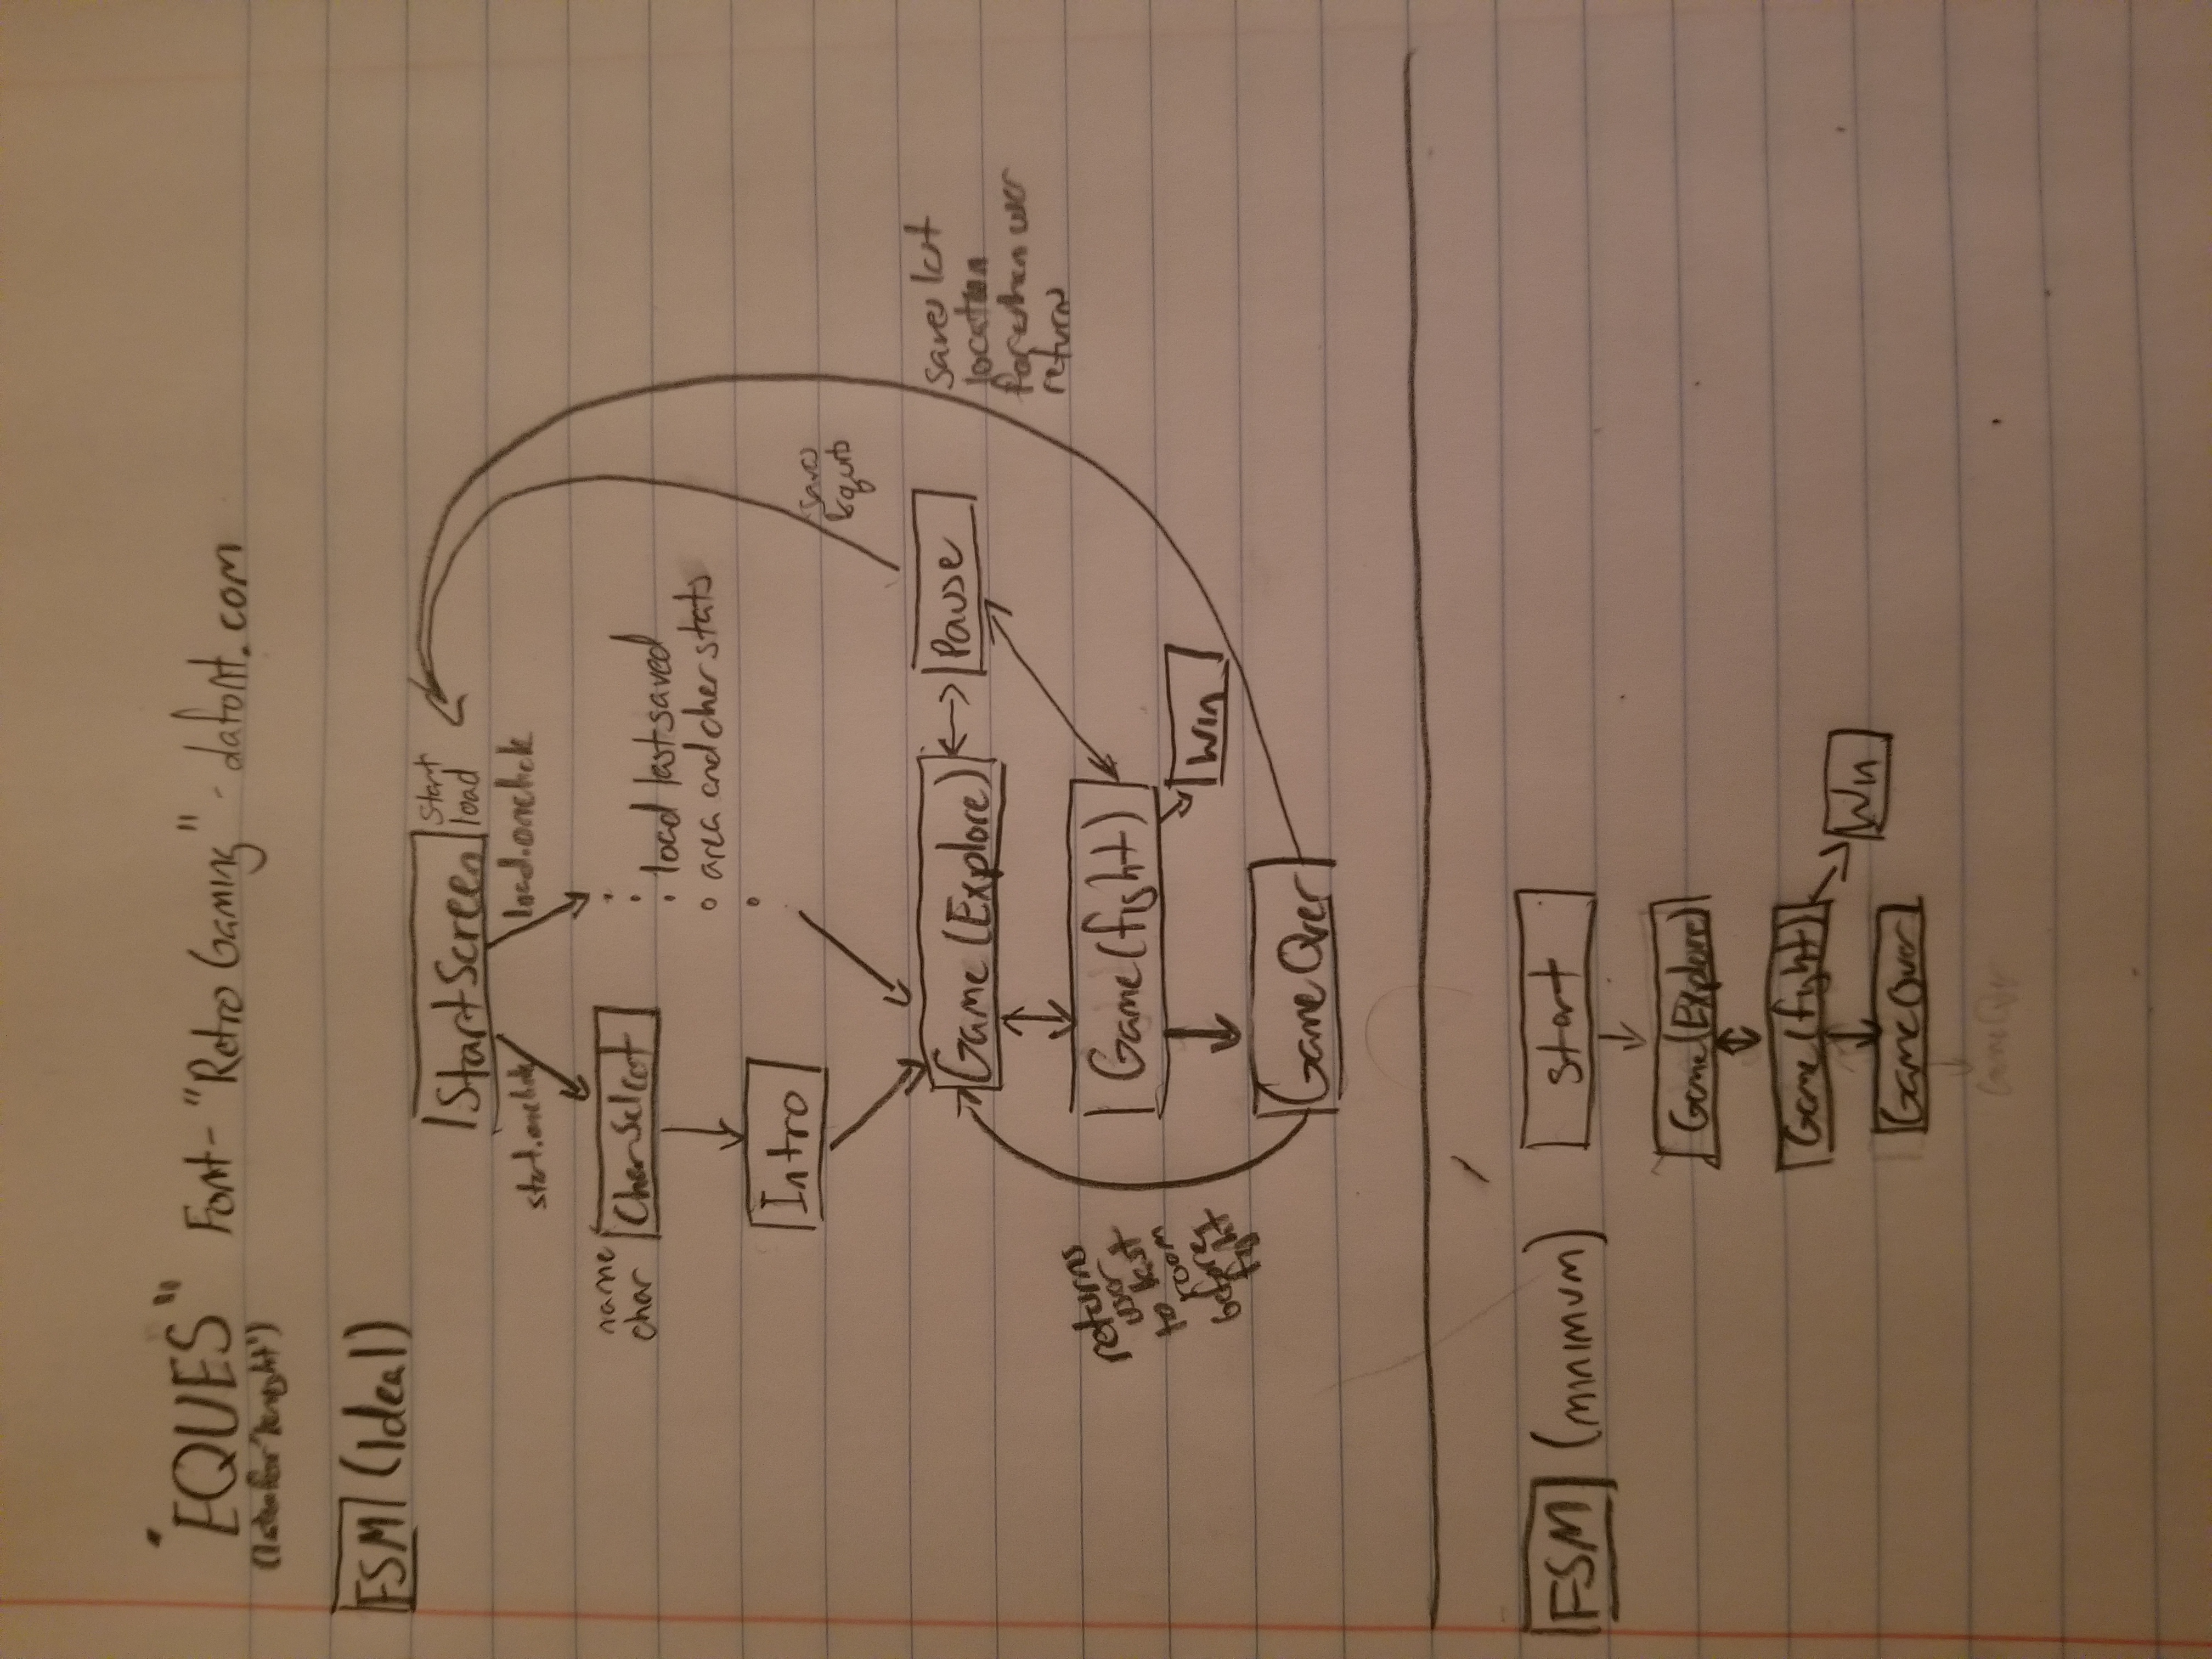 "EQUES" Font - "Retro Gaming" - dafont.com
(latin for "knight")
FSM (Ideal)
Start Screen
start
load
start.onclick
load.onclick
name
char
Char Select
load last saved
area and char stats
Intro
saves
& quits
Game (Explore)
Pause
saves last
location
for when user
returns
returns
user
to last
room
before
fight
Game (fight)
Win
Game Over
FSM (minimum)
Start
Game (Explore)
Game (fight)
Win
Game Over
Game Over